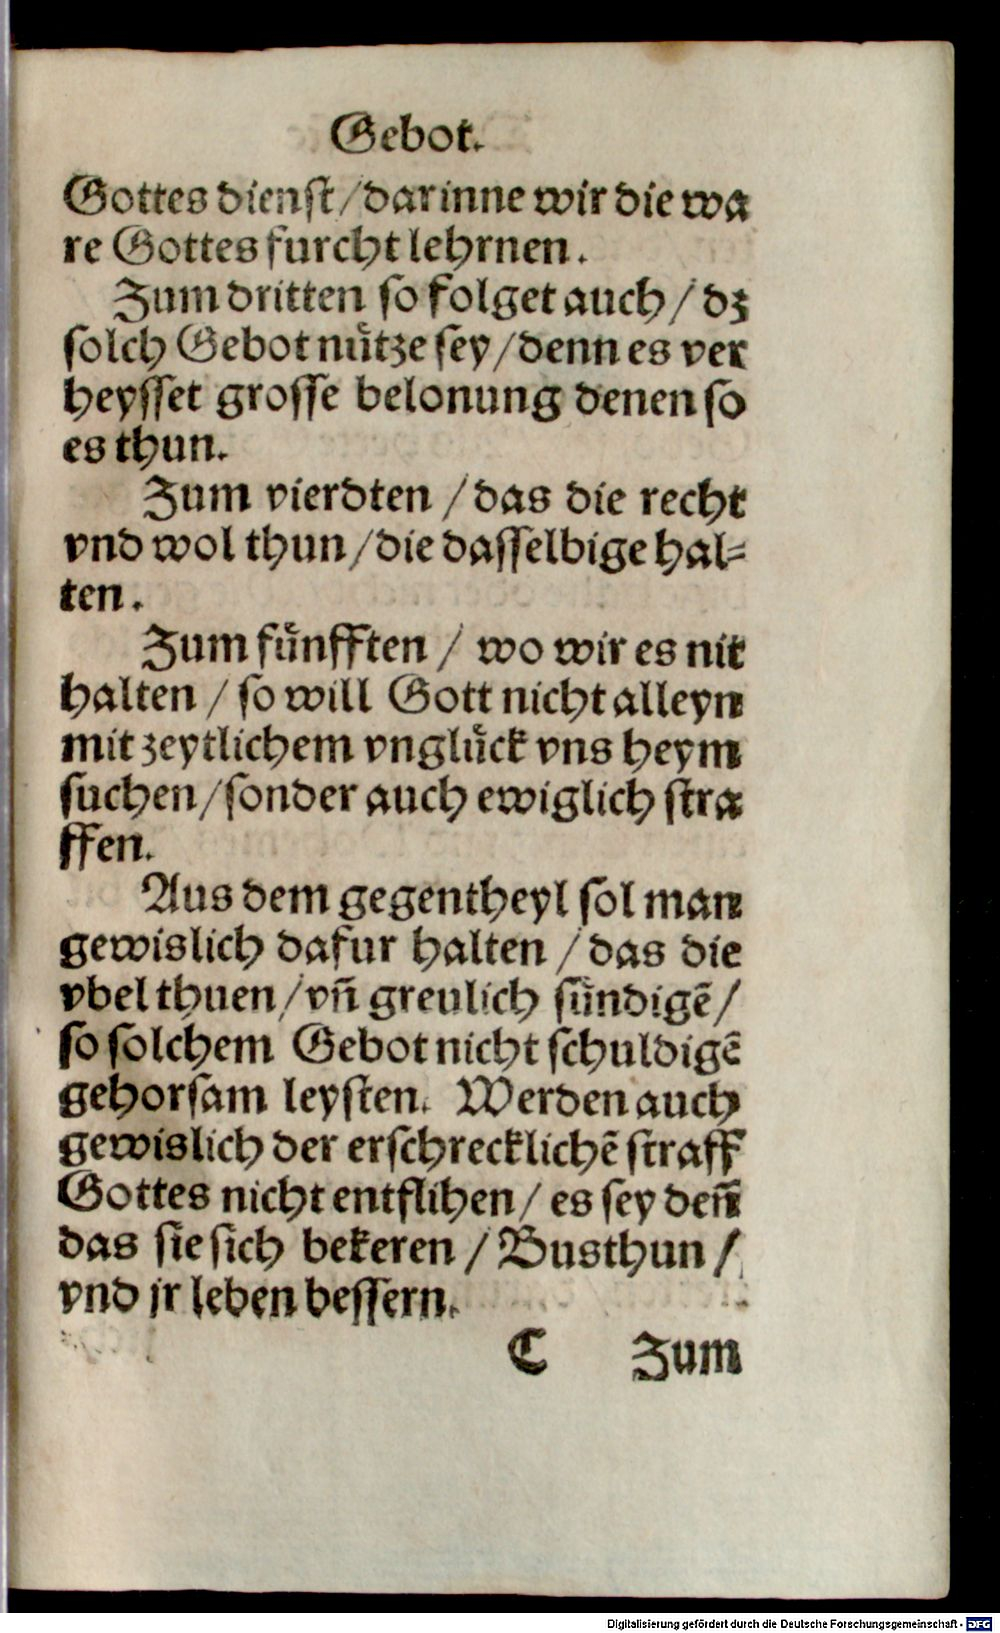 Gebot.
Gottes dienst/darinne wir die wa
re Gottes furcht lehrnen.
Zum dritten so folget auch/ dz
solch Gebot nuͤtze sey/denn es ver
heysset grosse belonung denen so
es thun.
Zum vierdten /das die recht
vnd wol thun/die dasselbige hal⸗
ten.
Zum fuͤnfften / wo wir es nit
halten / so will Gott nicht alleyn
mit zeytlichem vngluͤck vns heym
suchen/sonder auch ewiglich stra
ffen.
Aus dem gegentheyl sol man
gewislich dafur halten /das die
vbel thuen/vn̄ greulich suͤndigẽ/
so solchem Gebot nicht schuldigẽ
gehorsam leysten. Werden auch
gewislich der erschrecklichẽ straff
Gottes nicht entflihen/ es sey den̄
das sie sich bekeren / Busthun /
vnd jr leben bessern.
C Zum
Digitalisierung gefördert durch die Deutsche Forschungsgemeinschaft - DFG